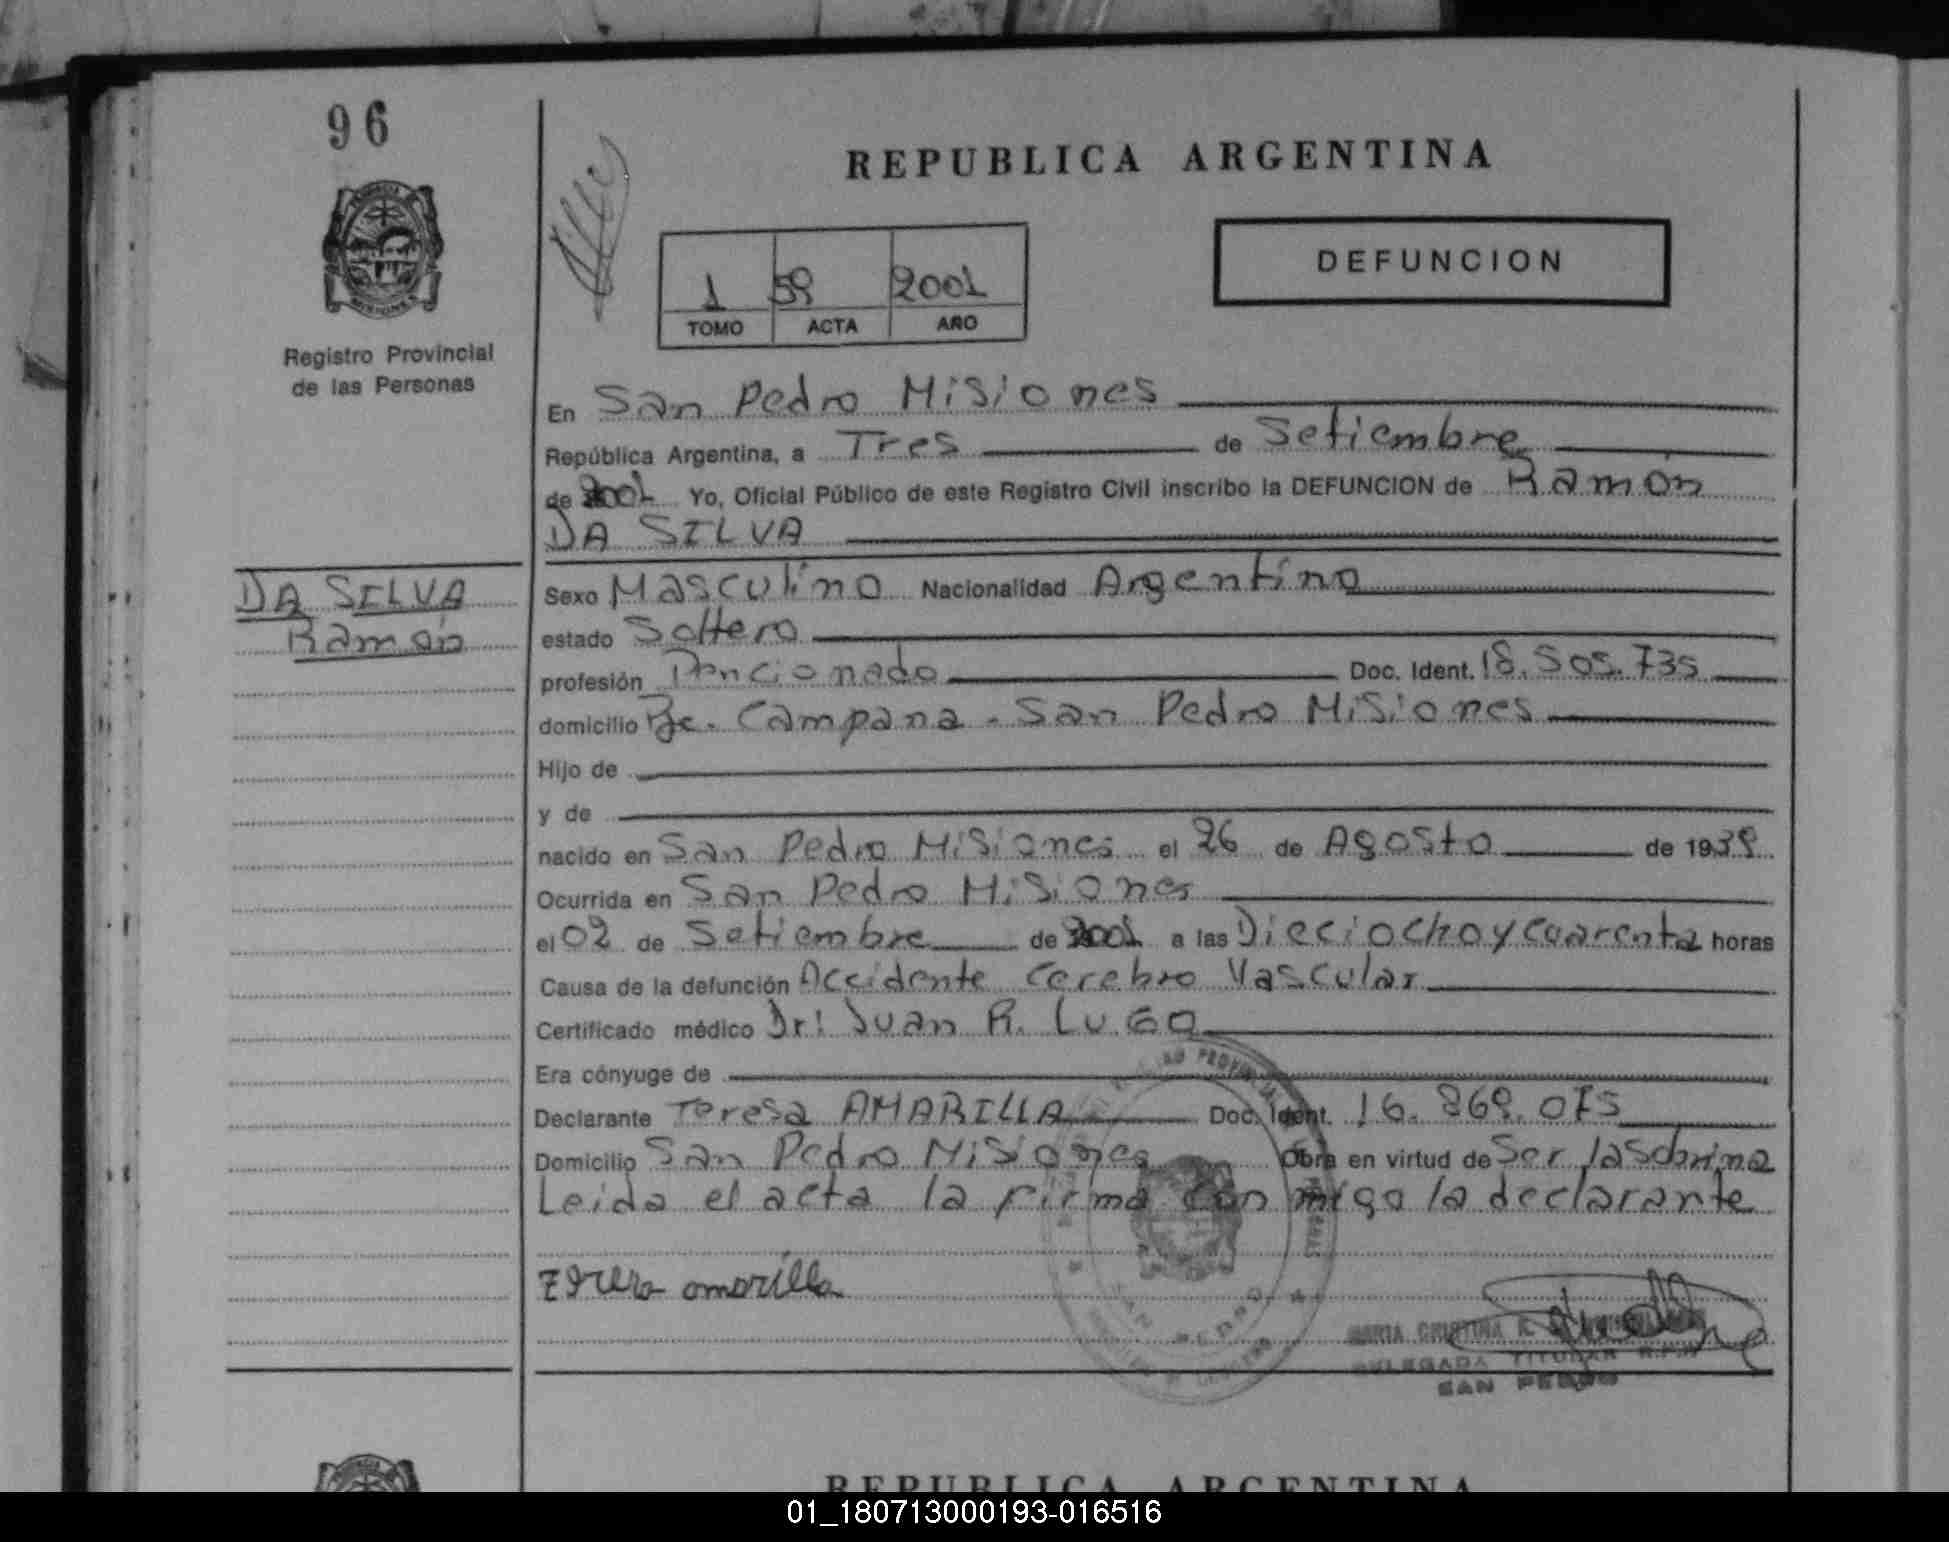 96
REPUBLICA ARGENTINA
DEFUNCION
1 59 2001
TOMO ACTA AÑO
Registro Provincial
de las Personas
En San Pedro Misiones
República Argentina, a Tres de Setiembre
de 2001 Yo, Oficial Público de este Registro Civil inscribo la DEFUNCION de Ramón
DA SILVA
DA SILVA
Ramón
Sexo Masculino Nacionalidad Argentino
estado Soltero
profesión Pencionado Doc. Ident. 18.505.735
domicilio Campana - San Pedro Misiones
Hijo de
y de
nacido en San Pedro Misiones el 26 de Agosto de 1939
Ocurrida en San Pedro Misiones
el 02 de Setiembre de 2001 a las Dieciocho y cuarenta horas
Causa de la defunción Accidente Cerebro Vascular
Certificado médico Dr: Juan R. LUGO
Era cónyuge de
Declarante Teresa AMARILLA Doc. Ident. 16.869.075
Domicilio San Pedro Misiones Obra en virtud de Ser la sobrina
Leida el acta la firma con migo la declarante
amarilla
MARIA CRISTINA
DELEGADA TITULAR
SAN PEDRO
SAN PEDRO
REPUBLICA ARGENTINA
01_180713000193-016516